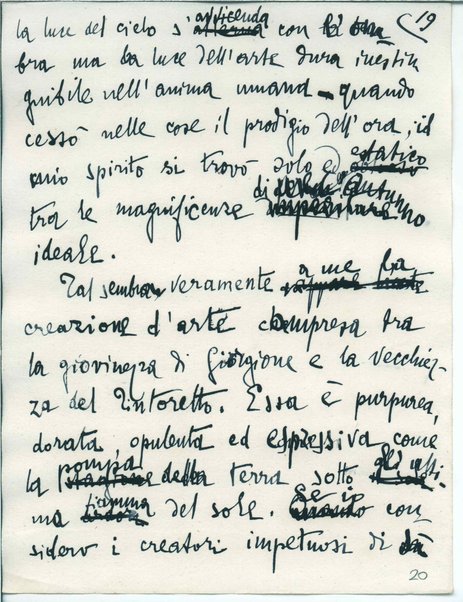 19
la luce del cielo s'avvicenda con l'om
bra ma la luce dell'arte dura inestin
guibile nell'anima umana – quando
cessò nelle cose il prodigio dell'ora, il
mio spirito si trovò solo ed estatico
tra le magnificenze di un Autunno
ideale.
Tal sembra veramente a me la
creazione d'arte compresa tra
la giovinezza di Giorgione e la vecchiez-
za del Tintoretto. Essa è purpurea,
dorata, opulenta ed espressiva come
la pompa della terra sotto gli ulti-
ma fiamma del sole. Se io con
sidero i creatori impetuosi di
20